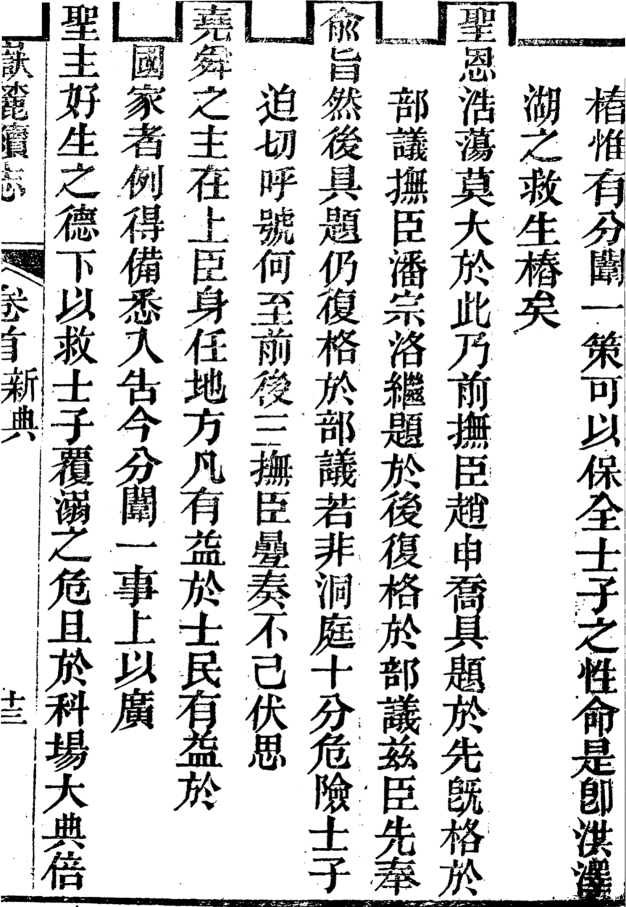 樁惟有分闈一策可以保全士子之性命是卽洪澤
湖之救生樁矣
聖恩浩蕩莫大於此乃前撫臣趙申喬具題於先旣格於
部議撫臣潘宗洛繼題於後復格於部議兹臣先奉
俞旨然後具題仍復格於部議若非洞庭十分危險士子
迫切呼號何至前後三撫臣疊奏不已伏思
堯舜之主在上臣身任地方凡有益於士民有益於
國家者例得備悉入告今分闈一事上以廣
聖主好生之德下以救士子覆溺之危且於科場大典倍
嶽麓續志
卷首 新典
十三